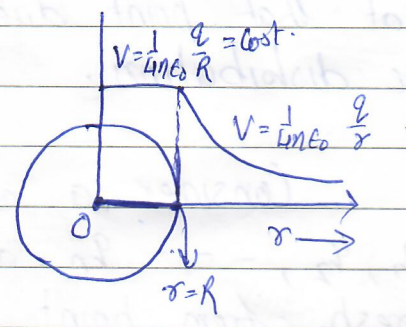 V = 1/4πε₀ q/R = Cost.
V = 1/4πε₀ q/r
O
r →
r = R